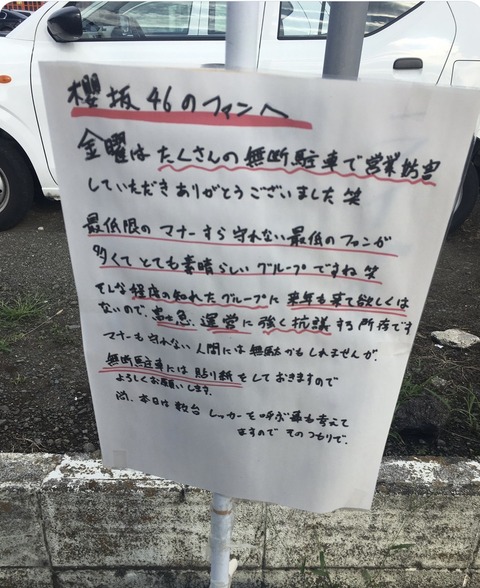 櫻坂46のファンへ
金曜はたくさんの無断駐車で営業妨害
していただきありがとうございました笑
最低限のマナーすら守れない最低のファンが
多くてとても素晴らしいグループですね笑
そんな程度の知れたグループに来年も来て欲しくは
ないので、至急、運営に強く抗議する所存です
マナーも守れない人間には無駄かもしれませんが、
無断駐車には貼り紙をしておきますので
よろしくお願いします。
尚、本日は数台レッカーを呼ぶ事も考えて
ますのでそのつもりで。